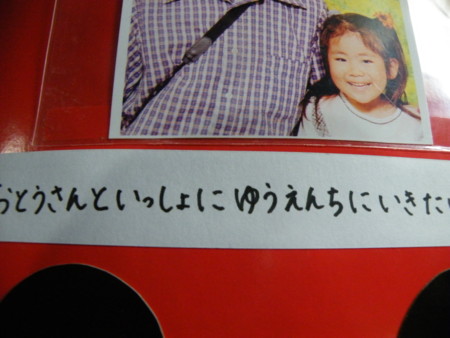 おとうさんといっしょにゆうえんちにいきたい